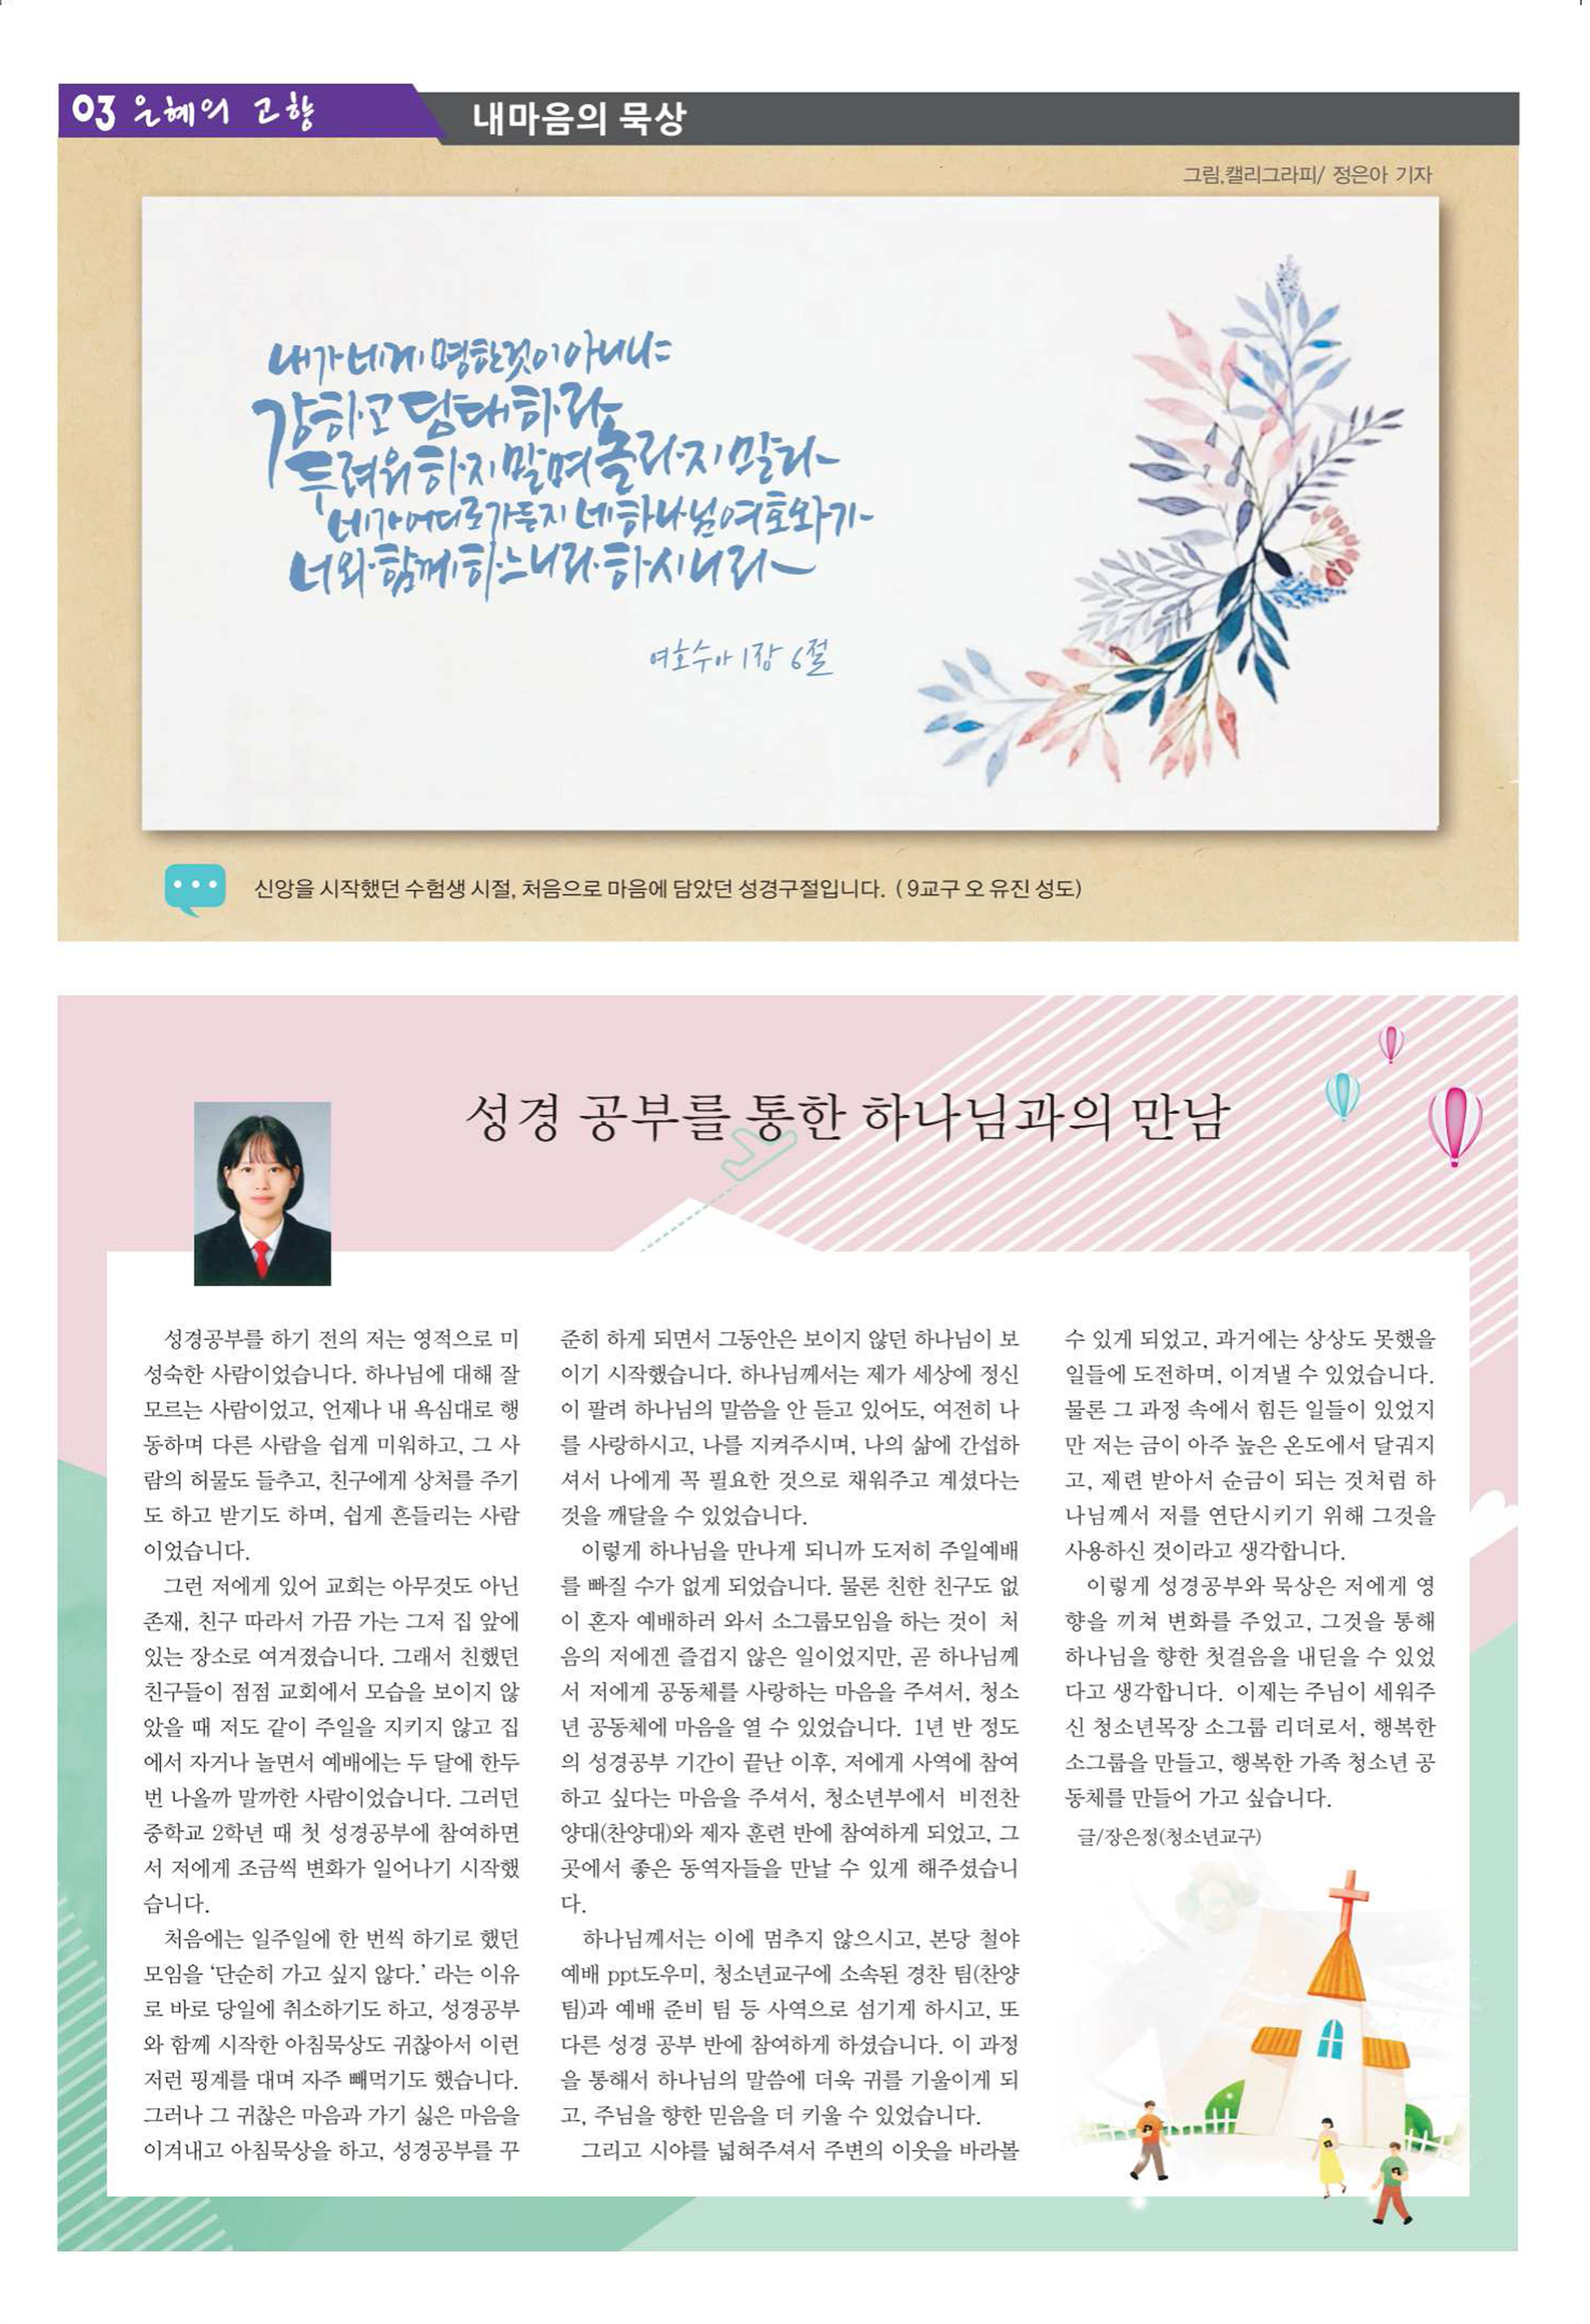 03 은혜의 고향
내마음의 묵상
그림,캘리그라피/ 정은아 기자
내가 네게 명한것이 아니냐
강하고 담대하라
두려워하지말며 놀라지말라
네가어디로가든지 네하나님여호와가
너와함께하느니라하시니라
여호수아 1장 6절
신앙을 시작했던 수험생 시절, 처음으로 마음에 담았던 성경구절입니다. ( 9교구 오 유진 성도)
성경 공부를 통한 하나님과의 만남
성경공부를 하기 전의 저는 영적으로 미
성숙한 사람이었습니다. 하나님에 대해 잘
모르는 사람이었고, 언제나 내 욕심대로 행
동하며 다른 사람을 쉽게 미워하고, 그 사
람의 허물도 들추고, 친구에게 상처를 주기
도 하고 받기도 하며, 쉽게 흔들리는 사람
이었습니다.
그런 저에게 있어 교회는 아무것도 아닌
존재, 친구 따라서 가끔 가는 그저 집 앞에
있는 장소로 여겨졌습니다. 그래서 친했던
친구들이 점점 교회에서 모습을 보이지 않
았을 때 저도 같이 주일을 지키지 않고 집
에서 자거나 놀면서 예배에는 두 달에 한두
번 나올까 말까한 사람이었습니다. 그러던
중학교 2학년 때 첫 성경공부에 참여하면
서 저에게 조금씩 변화가 일어나기 시작했
습니다.
처음에는 일주일에 한 번씩 하기로 했던
모임을 ‘단순히 가고 싶지 않다.’ 라는 이유
로 바로 당일에 취소하기도 하고, 성경공부
와 함께 시작한 아침묵상도 귀찮아서 이런
저런 핑계를 대며 자주 빼먹기도 했습니다.
그러나 그 귀찮은 마음과 가기 싫은 마음을
이겨내고 아침묵상을 하고, 성경공부를 꾸
준히 하게 되면서 그동안은 보이지 않던 하나님이 보
이기 시작했습니다. 하나님께서는 제가 세상에 정신
이 팔려 하나님의 말씀을 안 듣고 있어도, 여전히 나
를 사랑하시고, 나를 지켜주시며, 나의 삶에 간섭하
셔서 나에게 꼭 필요한 것으로 채워주고 계셨다는
것을 깨달을 수 있었습니다.
이렇게 하나님을 만나게 되니까 도저히 주일예배
를 빠질 수가 없게 되었습니다. 물론 친한 친구도 없
이 혼자 예배하러 와서 소그룹모임을 하는 것이 처
음의 저에겐 즐겁지 않은 일이었지만, 곧 하나님께
서 저에게 공동체를 사랑하는 마음을 주셔서, 청소
년 공동체에 마음을 열 수 있었습니다. 1년 반 정도
의 성경공부 기간이 끝난 이후, 저에게 사역에 참여
하고 싶다는 마음을 주셔서, 청소년부에서 비전찬
양대(찬양대)와 제자 훈련 반에 참여하게 되었고, 그
곳에서 좋은 동역자들을 만날 수 있게 해주셨습니
다.
하나님께서는 이에 멈추지 않으시고, 본당 철야
예배 ppt도우미, 청소년교구에 소속된 경찬 팀(찬양
팀)과 예배 준비 팀 등 사역으로 섬기게 하시고, 또
다른 성경 공부 반에 참여하게 하셨습니다. 이 과정
을 통해서 하나님의 말씀에 더욱 귀를 기울이게 되
고, 주님을 향한 믿음을 더 키울 수 있었습니다.
그리고 시야를 넓혀주셔서 주변의 이웃을 바라볼
수 있게 되었고, 과거에는 상상도 못했을
일들에 도전하며, 이겨낼 수 있었습니다.
물론 그 과정 속에서 힘든 일들이 있었지
만 저는 금이 아주 높은 온도에서 달궈지
고, 제련 받아서 순금이 되는 것처럼 하
나님께서 저를 연단시키기 위해 그것을
사용하신 것이라고 생각합니다.
이렇게 성경공부와 묵상은 저에게 영
향을 끼쳐 변화를 주었고, 그것을 통해
하나님을 향한 첫걸음을 내딛을 수 있었
다고 생각합니다. 이제는 주님이 세워주
신 청소년목장 소그룹 리더로서, 행복한
소그룹을 만들고, 행복한 가족 청소년 공
동체를 만들어 가고 싶습니다.
글/장은정(청소년교구)